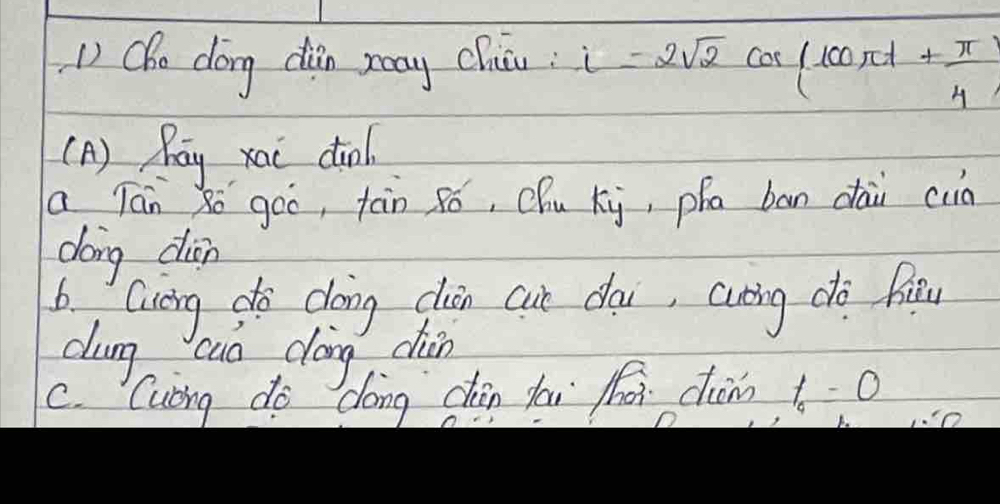 1) Cho dòng điện xoay chiều : i = 2√2 cos (100πt + π/4)
(A) Hãy xác định
a Tần số góc, tần số, chu kỳ, pha ban đầu của
dòng điện
b. Cường độ dòng điện cực đại, cường độ hiệu
dụng của dòng điện
c. Cường độ dòng điện tại thời điểm t₀ = 0